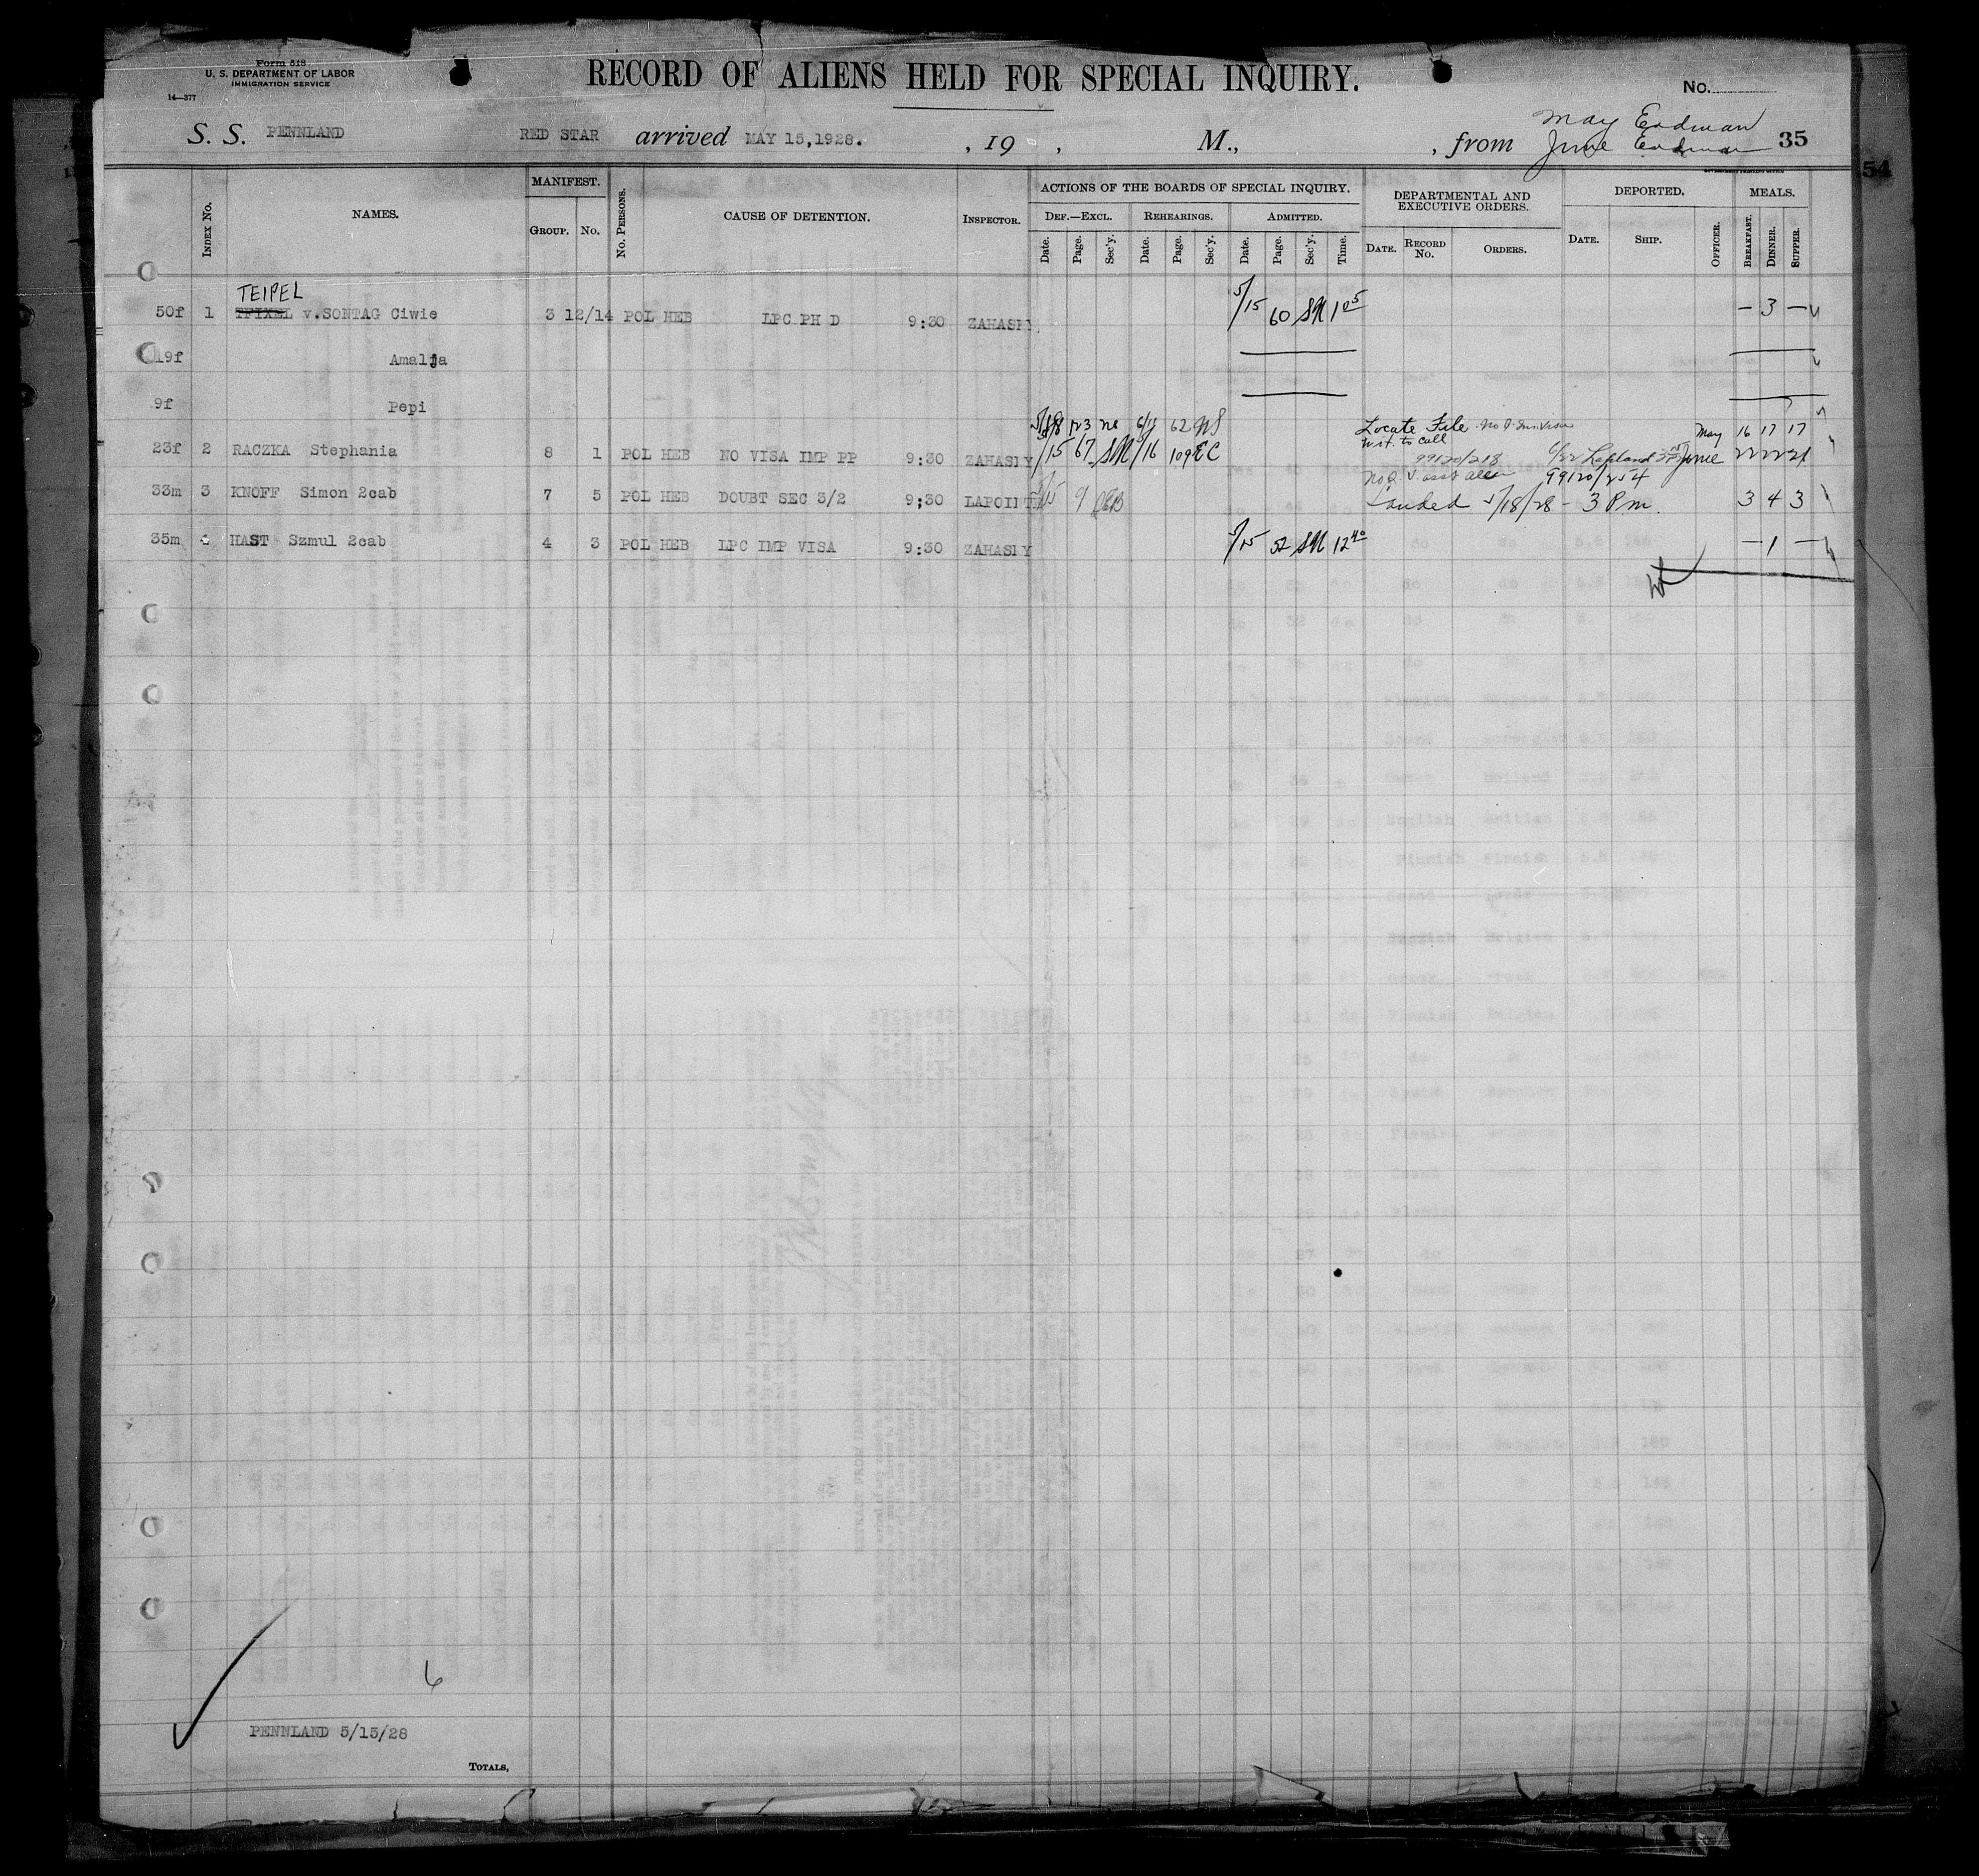 Form 518
U. S. DEPARTMENT OF LABOR
IMMIGRATION SERVICE
14—377
RECORD OF ALIENS HELD FOR SPECIAL INQUIRY.
No.
S. S. PENNLAND RED STAR arrived MAY 15,1928. , 19 , M., , from May Erdman
June Erdman 35
54
INDEX No. NAMES. MANIFEST. GROUP. No. No. PERSONS. CAUSE OF DETENTION. INSPECTOR.
ACTIONS OF THE BOARDS OF SPECIAL INQUIRY.
DEF.—EXCL. Date. Page. Sec'y. REHEARINGS. Date. Page. Sec'y. ADMITTED. Date. Page. Sec'y. Time.
DEPARTMENTAL AND EXECUTIVE ORDERS. DATE. RECORD No. ORDERS.
DEPORTED. DATE. SHIP. OFFICER.
MEALS. BREAKFAST. DINNER. SUPPER.
TEIPEL
50f 1 v.SONTAG Ciwie 3 12/14 POL HEB LPC PH D 9:30 ZAHASKY 5/15 60 SM 1 05 – 3 –
19f Amalja
9f Pepi
5/18 123 6/11 62 Locate File May 16 17 17
wit. to call
23f 2 RACZKA Stephania 8 1 POL HEB NO VISA IMP PP 9:30 ZAHASKY 5/15 67 SM 5/16 109 EC 99120/218 6/22 Lapland June 22 22 21
99120/254
33m 3 KNOFF Simon 2cab 7 5 POL HEB DOUBT SEC 3/2 9;30 LAPOINTE 5/15 9 Landed 5/18/28 - 3 Pm. 3 4 3
35m 4 HAST Szmul 2cab 4 3 POL HEB LPC IMP VISA 9:30 ZAHASKY 5/15 52 SM 12 40 – 1 –
6
PENNLAND 5/15/28
TOTALS,